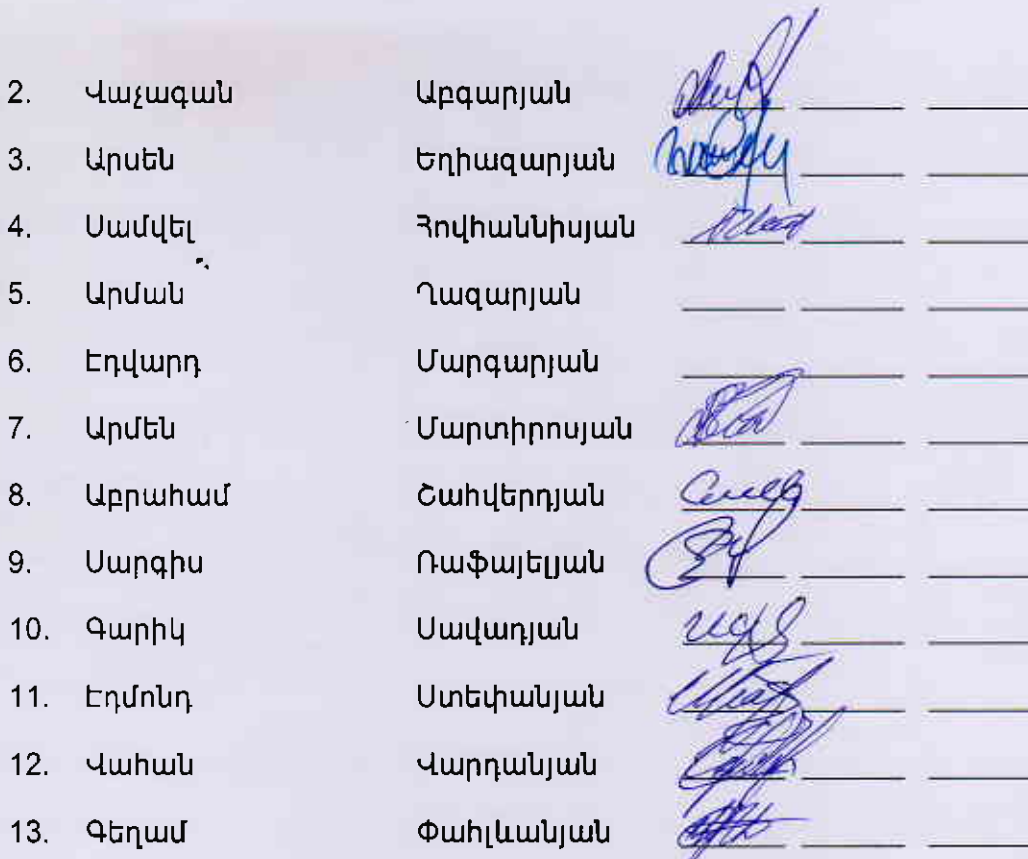 2. Վաչագան Աբգարյան
3. Արսեն Եղիազարյան
4. Սամվել Հովհաննիսյան
5. Արման Ղազարյան
6. Էդվարդ Մարգարյան
7. Արմեն Մարտիրոսյան
8. Աբրահամ Շահվերդյան
9. Սարգիս Ռաֆայելյան
10. Գարիկ Սավադյան
11. Էդմոնդ Ստեփանյան
12. Վահան Վարդանյան
13. Գեղամ Փահլևանյան